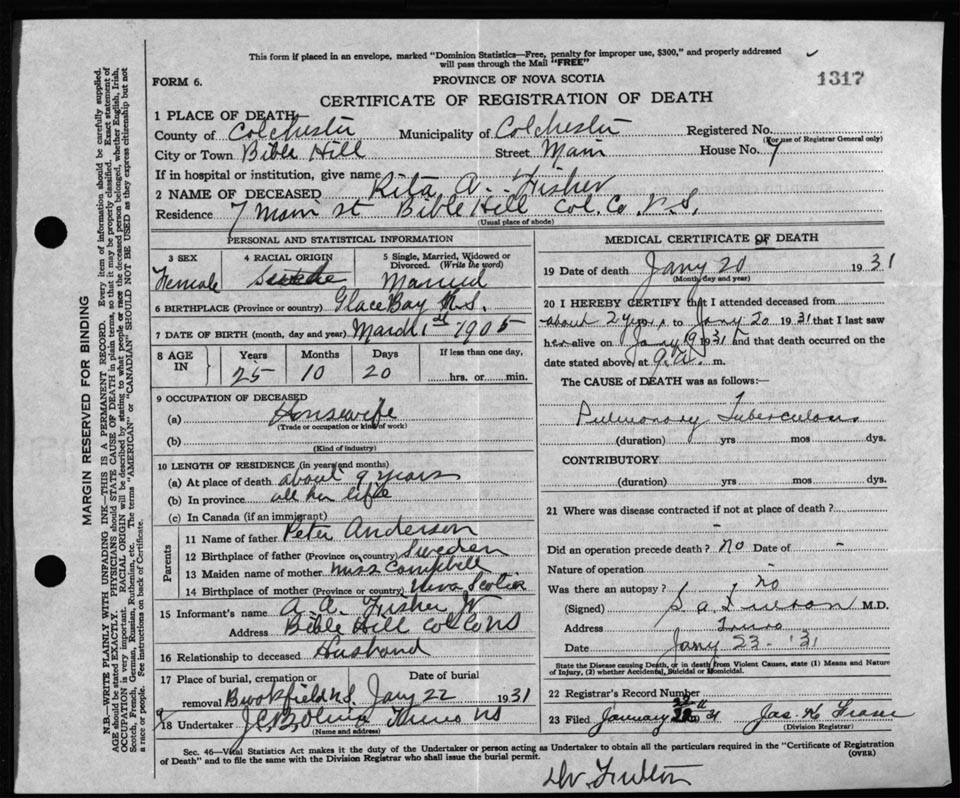 This form if placed in an envelope, marked "Dominion Statistics—Free, penalty for improper use, $300," and properly addressed
will pass through the Mail "FREE"
1317
FORM 6.
PROVINCE OF NOVA SCOTIA
CERTIFICATE OF REGISTRATION OF DEATH
1 PLACE OF DEATH
County of Colchester Municipality of Colchester Registered No.
(For use of Registrar General only)
City or Town Bible Hill Street Main House No. 7
If in hospital or institution, give name
2 NAME OF DECEASED Rita A. Fisher
Residence 7 Main St Bible Hill Col. Co. N.S.
(Usual place of abode)
PERSONAL AND STATISTICAL INFORMATION
3 SEX 4 RACIAL ORIGIN 5 Single, Married, Widowed or
Divorced. (Write the word)
Female Married
6 BIRTHPLACE (Province or country) Glace Bay N.S.
7 DATE OF BIRTH (month, day and year) March 1st 1905
8 AGE IN Years Months Days If less than one day,
25 10 20 hrs. or min.
9 OCCUPATION OF DECEASED
(a) Housewife
(Trade or occupation or kind of work)
(b)
(Kind of industry)
10 LENGTH OF RESIDENCE (in years and months)
(a) At place of death about 9 years
(b) In province all her life
(c) In Canada (if an immigrant)
Parents
11 Name of father Peter Anderson
12 Birthplace of father (Province or country) Sweden
13 Maiden name of mother Miss Campbell
14 Birthplace of mother (Province or country) Nova Scotia
15 Informant's name A. A. Fisher Jr
Address Bible Hill Col Co NS
16 Relationship to deceased Husband
17 Place of burial, cremation or Date of burial
removal Brookfield N.S. Jany 22 1931
18 Undertaker Truro NS
(Name and address)
MEDICAL CERTIFICATE OF DEATH
19 Date of death Jany 20 1931
(Month, day and year)
20 I HEREBY CERTIFY that I attended deceased from
about 2 years to Jany 20 1931 that I last saw
her alive on Jany 19 1931 and that death occurred on the
date stated above, at 9 A. m.
The CAUSE of DEATH was as follows:—
Pulmonary Tuberculosis
(duration) yrs mos dys.
CONTRIBUTORY
(duration) yrs mos dys.
21 Where was disease contracted if not at place of death?
-
Did an operation precede death? no Date of -
Nature of operation
Was there an autopsy? no
(Signed) S. A. Fulton M.D.
Address Truro
Date Jany 23. '31
State the Disease causing Death, or in death from Violent Causes, state (1) Means and Nature
of Injury, (2) whether Accidental, Suicidal or Homicidal.
22 Registrar's Record Number
23 Filed January 22th 31 Jas.
(Division Registrar)
Sec. 46—Vital Statistics Act makes it the duty of the Undertaker or person acting as Undertaker to obtain all the particulars required in the "Certificate of Registration
of Death" and to file the same with the Division Registrar who shall issue the burial permit.
(OVER)
Dr. Fulton
MARGIN RESERVED FOR BINDING
N.B.—WRITE PLAINLY WITH UNFADING INK—THIS IS A PERMANENT RECORD. Every item of information should be carefully supplied.
AGE should be stated EXACTLY. PHYSICIANS should STATE CAUSE OF DEATH in plain terms, so that it may be properly classified. Exact statement of
OCCUPATION is very important. RACIAL ORIGIN will be described by stating to what people or race the deceased person belonged, whether English, Irish,
Scotch, French, German, Russian, Ruthenian, etc. The terms "AMERICAN" or "CANADIAN" SHOULD NOT BE USED as they express citizenship but not
a race or people. See instructions on back of Certificate.